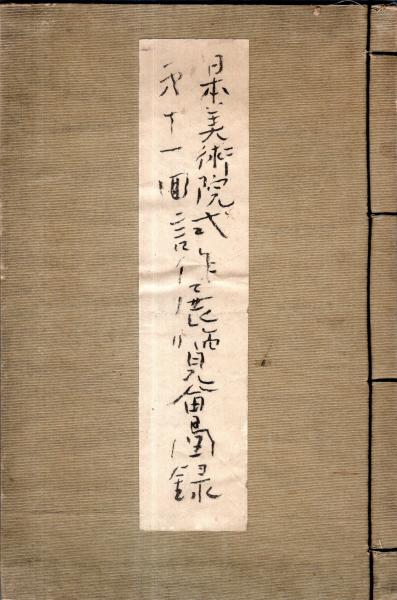 日本美術院
第十一回
試作展覧會圖録